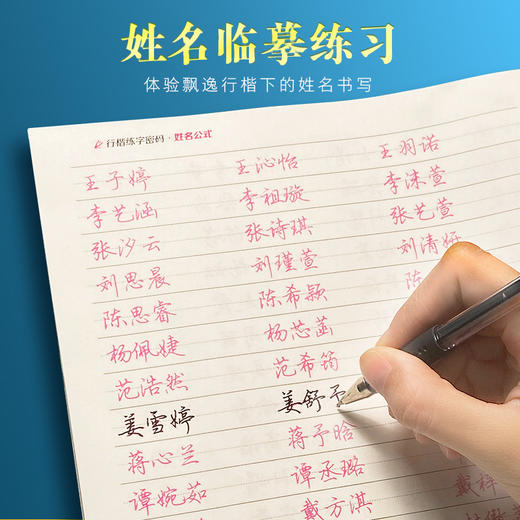 姓名临摹练习
体验飘逸行楷下的姓名书写
行楷练字密码·姓名公式
王子婷 王沁怡 王羽诺
李艺涵 李祖璇 李沫萱
张汐云 张诗琪 张艺萱
刘思晨 刘瑾萱 刘清妍
陈思睿 陈希颖 陈
杨佩婕 杨芯菡
范浩然 范希筠
姜雪婷 姜舒予
蒋心兰 蒋予晗
谭婉茹 谭丞璐
戴方淇 戴梓